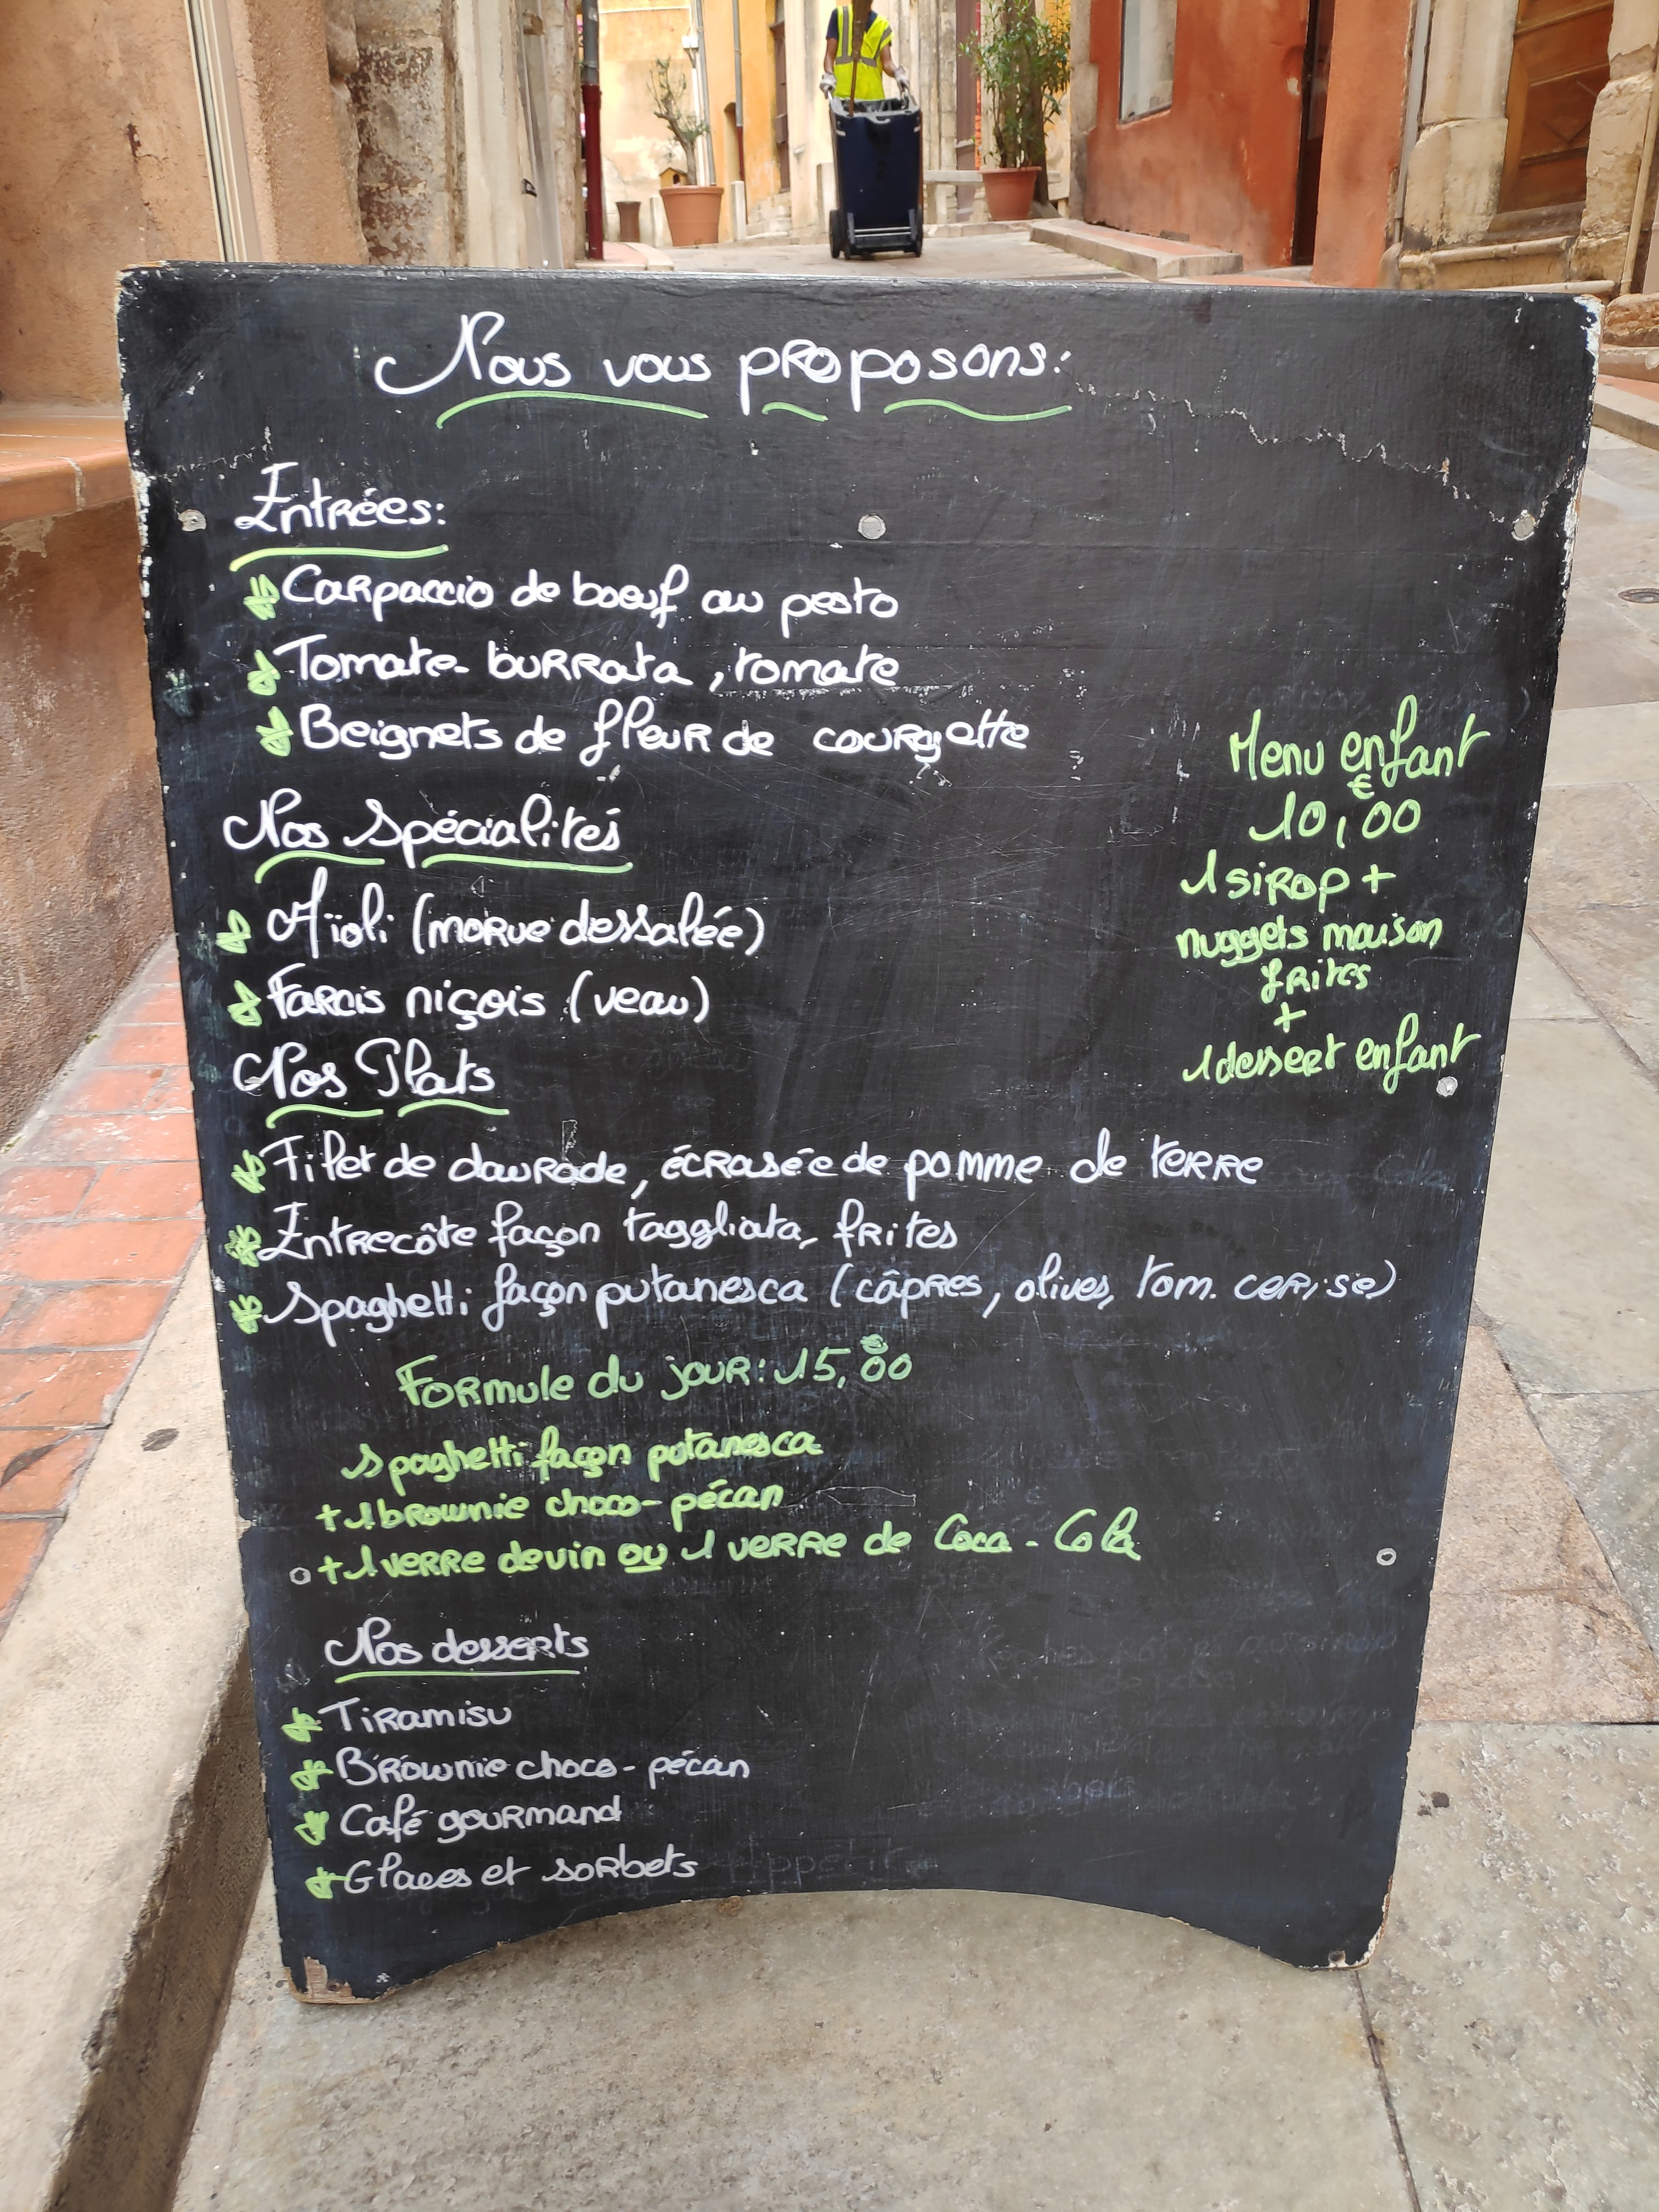 Nous vous proposons:
Entrées:
Carpaccio de boeuf au pesto
Tomate- burrata, tomate
Beignets de fleur de courgette
Nos Spécialités
Aïoli (morue dessalée)
Farcis niçois (veau)
Nos Plats
Filet de daurade, écrasée de pomme de terre
Entrecôte façon taggliata, frites
Spaghetti façon putanesca (câpres, olives, tom. cerise)
Menu enfant
10,00€
1 sirop +
nuggets maison
frites
+
1 dessert enfant
Formule du jour: 15,00
Spaghetti façon putanesca
+ 1 brownie choco-pécan
+ 1 verre de vin ou 1 verre de Coca-Cola
Nos desserts
Tiramisu
Brownie choco-pécan
Café gourmand
Glaces et sorbets